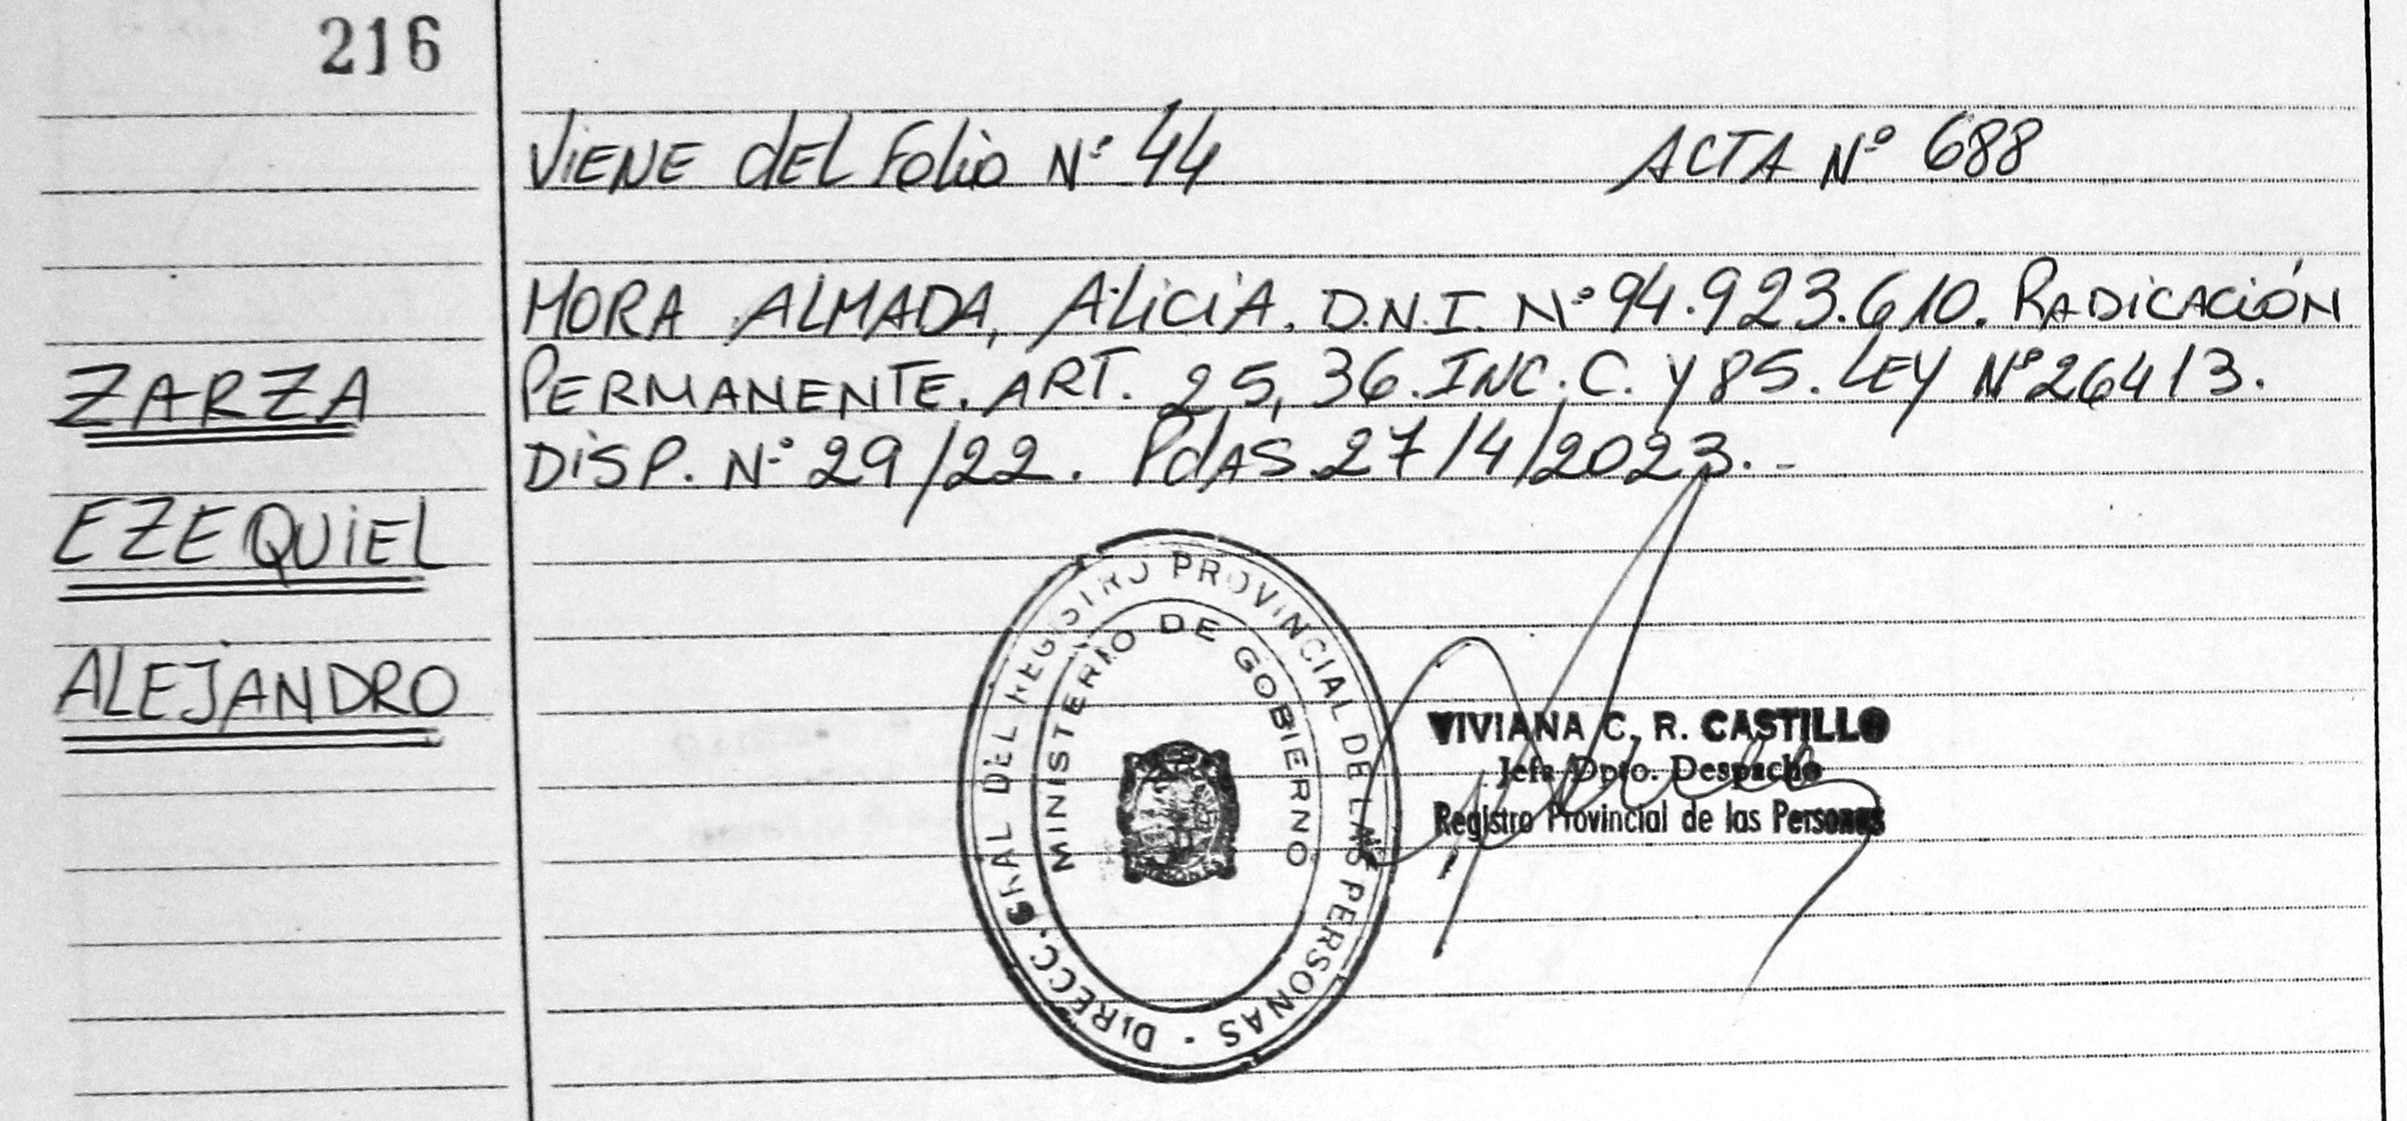 216
ViENE dEL Folio Nº 44 ACTA Nº 688
MORA ALMADA, ALiCiA. D.N.I. Nº 94.923.610. RADiCACiÓN
PERMANENTE. ART. 25, 36. INC. C. Y 85. LEY Nº 26413.
DiSP. Nº 29/22. PdAS. 27/4/2023.-
ZARZA
EZEQUiEL
ALEJANDRO
DIRECC. GRAL DEL REGISTRO PROVINCIAL DE LAS PERSONAS -
MINISTERIO DE GOBIERNO
VIVIANA C. R. CASTILLO
Jefa Dpto. Despacho
Registro Provincial de las Personas